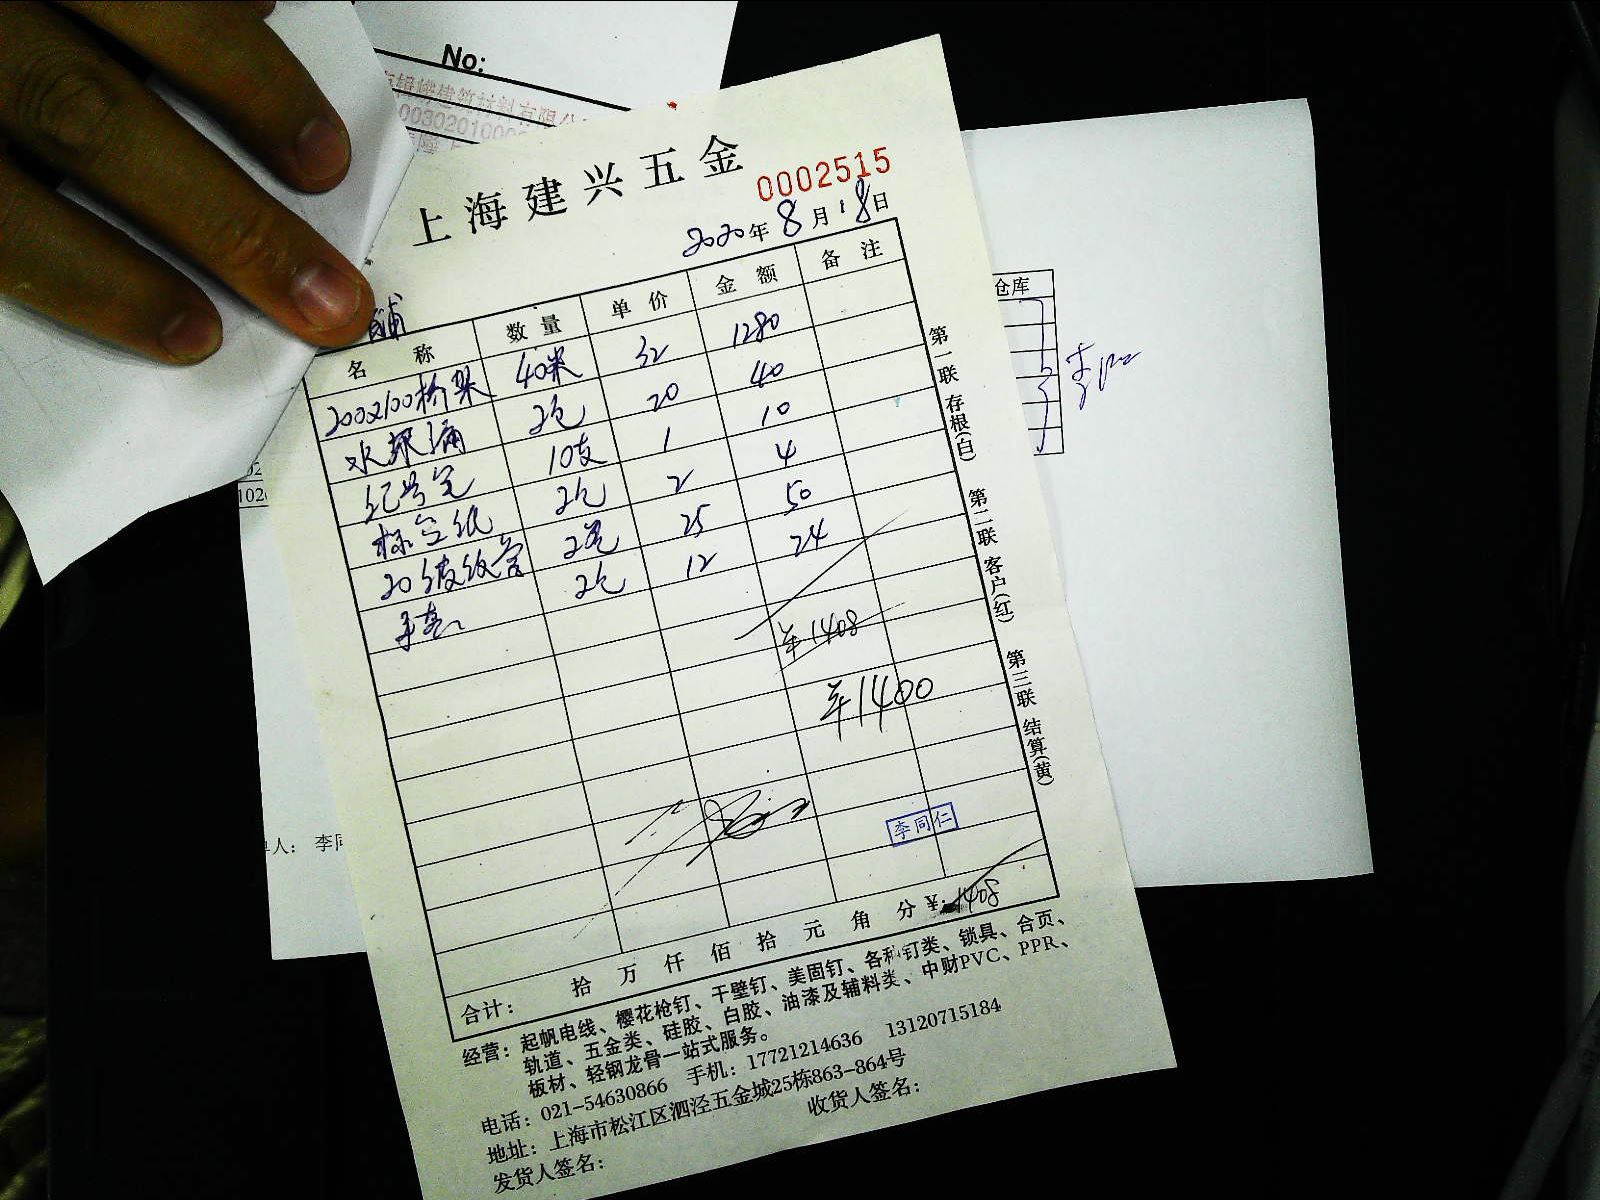 No:
建筑材料有限公
上海建兴五金
0002515
2020年8月18日
名称 数量 单价 金额 备注
200x100桥架 40米 32 1280
水不漏 2包 20 40
记号笔 10支 1 10
标签纸 2包 2 4
2卷 25 50
手套 2包 12 24
¥1408
¥1400
李同仁
合计: 拾 万 仟 佰 拾 元 角 分 ¥:1408
第一联 存根(白) 第二联 客户(红) 第三联 结算(黄)
经营: 起帆电线、樱花枪钉、干壁钉、美固钉、各种钉类、锁具、合页、
轨道、五金类、硅胶、白胶、油漆及辅料类、中财PVC、PPR、
板材、轻钢龙骨一站式服务。
电话: 021-54630866 手机: 17721214636 13120715184
地址: 上海市松江区泗泾五金城25栋863-864号
发货人签名: 收货人签名:
仓库
人: 李同